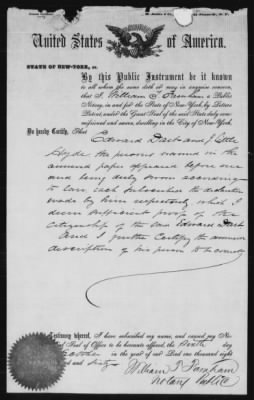 United States of America.
STATE OF NEW-YORK, ss.
By this Public Instrument be it known
to all whom the same doth or may in anywise concern,
that I, William T. Farnham a Public
Notary, in and for the State of New-York, by Letters
Patent, under the Great Seal of the said State duly com-
missioned and sworn, dwelling in the City of New-York,
Do hereby Certify, That Edward Dart and
Hyde the persons named in the
annexed paper appeared before me
and being duly sworn according
to law, each subscribed the
made by him respectively which I
deem sufficient proof of the
citizenship of the said Edward Dart
And I further Certify the annexed
description of his person to be correct
Testimony whereof, I have subscribed my name, and caused my No-
Seal of Office to be hereunto affixed, the Ninth day
October in the year of our Lord one thousand eight
and sixty
William T. Farnham
Notary Public